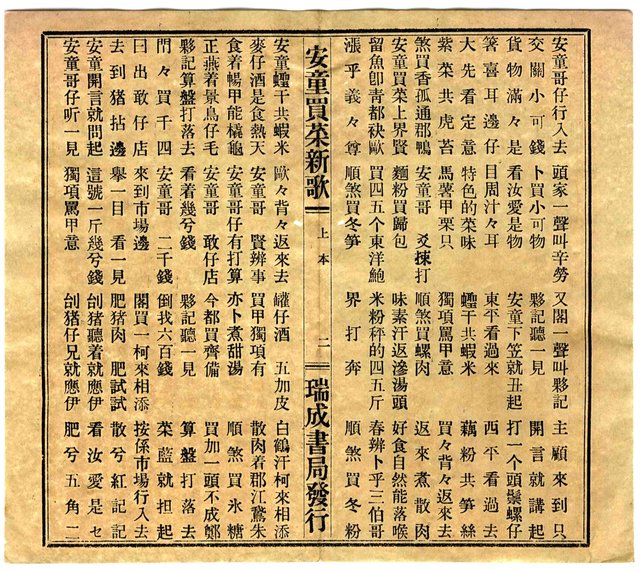 安童哥仔行入去 頭家一聲叫辛勞 又閣一聲叫夥記 主顧來到只
交關小可錢 卜買小可物 夥記聽一見 開言就講起
貨物滿々是 看汝愛是物 安童下笠就丑起 打一个頭鬃螺仔
箸喜耳邊仔 目周汁々耳 東平看過來 西平看過去
大先看定意 特色的菜味 蟶干共蝦米 藕粉共笋絲
紫菜共虎苔 馬薯甲栗只 獨項罵甲意 買々背々返來去
煞買香孤通郡鴨 安童哥 捒打 順煞買螺肉 返來煮散肉
安童買菜上界賢 麵粉買歸包 味素汗返滲湯頭 好食自然能落喉
留魚卽青都袂歐 買四五个東洋鮑 米粉秤的四五斤 春辨卜乎三伯哥
漲乎義々尊 順煞買冬笋 界打奔 順煞買冬粉
安童買菜新歌 上本 二 瑞成書局發行
安童蟶干共蝦米 歐々背々返來去 罐仔酒 五加皮 白鶴汗柯來相添
麥仔酒是食熱天 安童哥 賢辨事 買甲獨項有 散肉着郡江驚朱
食着暢甲能橇龜 安童哥仔有打算 亦卜煮甜湯 順煞買氷糖
正燕着景鳥仔毛 安童哥 敢仔店 今都買齊備 買加一頭不成鄭
夥記算盤打落去 看着幾兮錢 夥記聽一見 算盤打落去
門々買千四 安童哥 二千錢 倒我六百錢 菜藍就担起
曰出敢仔店 來到市場邊 閣買一柯來相添 按係市場行入去
去到猪拈邊 舉一目 看一見 肥猪肉 肥試試 散兮紅記記
安童開言就問起 這號一斤幾兮錢 刣猪聽着就應伊 看汝愛是セ
安童哥仔听一見 獨項罵甲意 刣猪仔兄就應伊 肥兮五角二